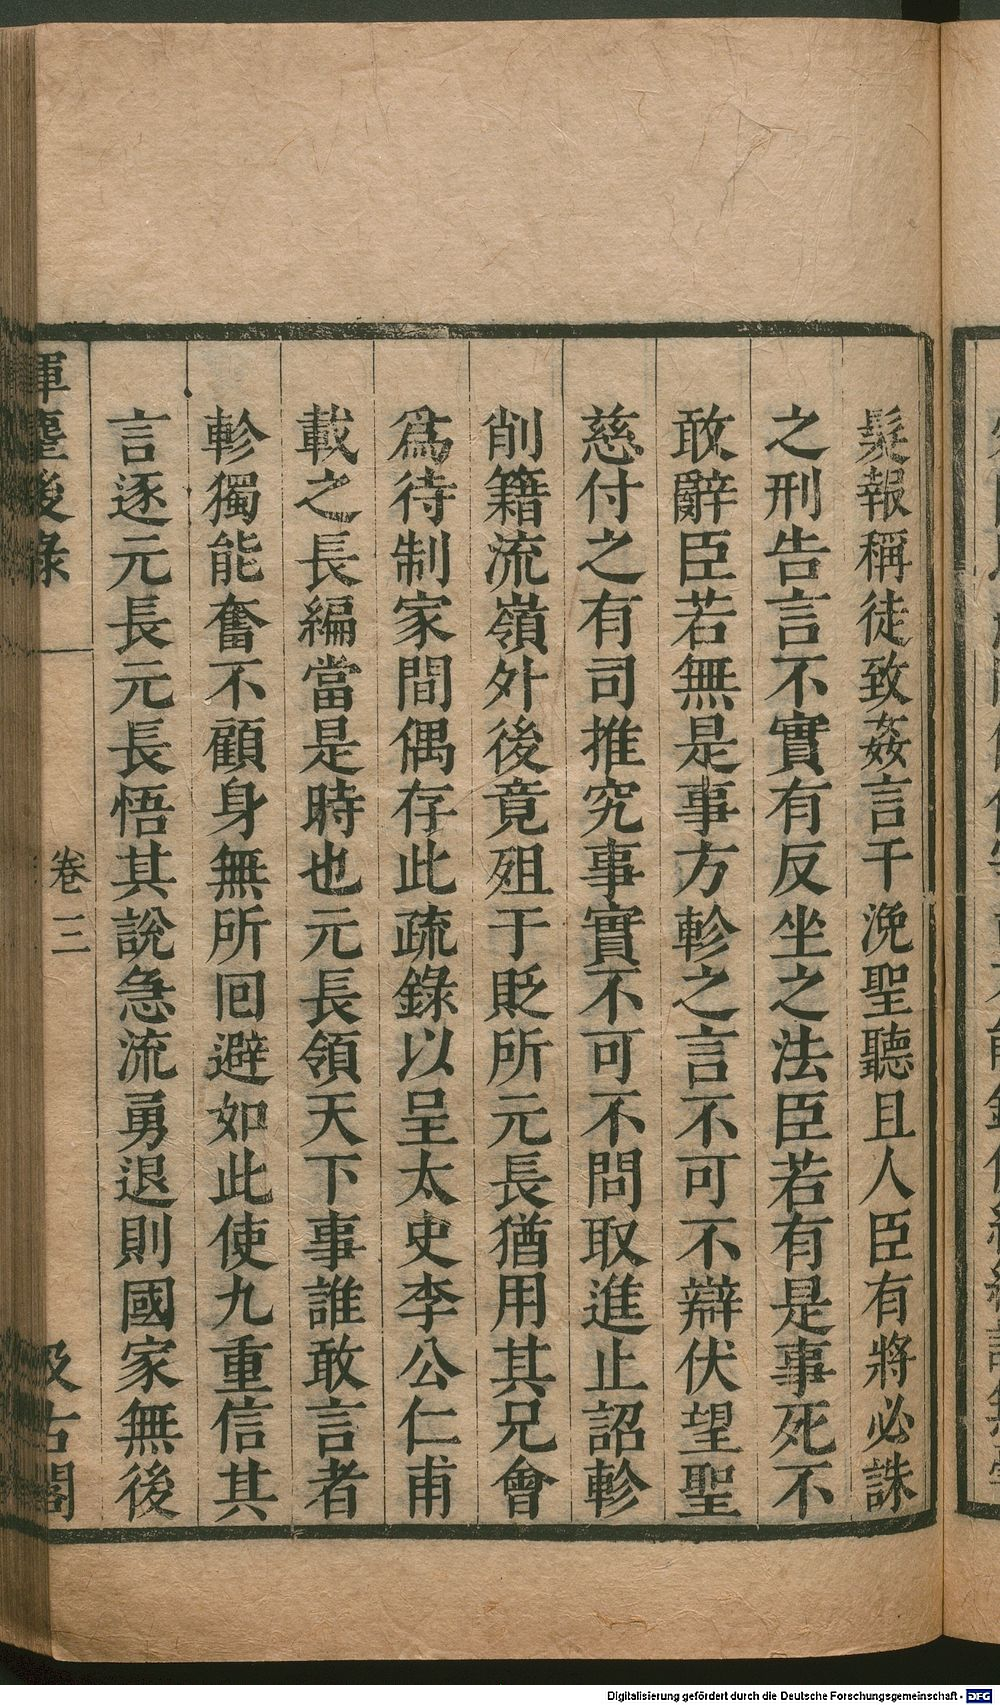 髮報稱徒致姦言干浼聖聽且人臣有將必誅
之刑告言不實有反坐之法臣若有是事死不
敢辭臣若無是事方軫之言不可不辯伏望聖
慈付之有司推究事實不可不問取進止詔軫
削籍流嶺外後竟殂于貶所元長猶用其兄會
爲待制家間偶存此疏錄以呈太史李公仁甫
載之長編當是時也元長領天下事誰敢言者
軫獨能奮不顧身無所回避如此使九重信其
言逐元長元長悟其說急流勇退則國家無後
揮麈後錄
卷三
汲古閣
Digitalisierung gefördert durch die Deutsche Forschungsgemeinschaft - DFG